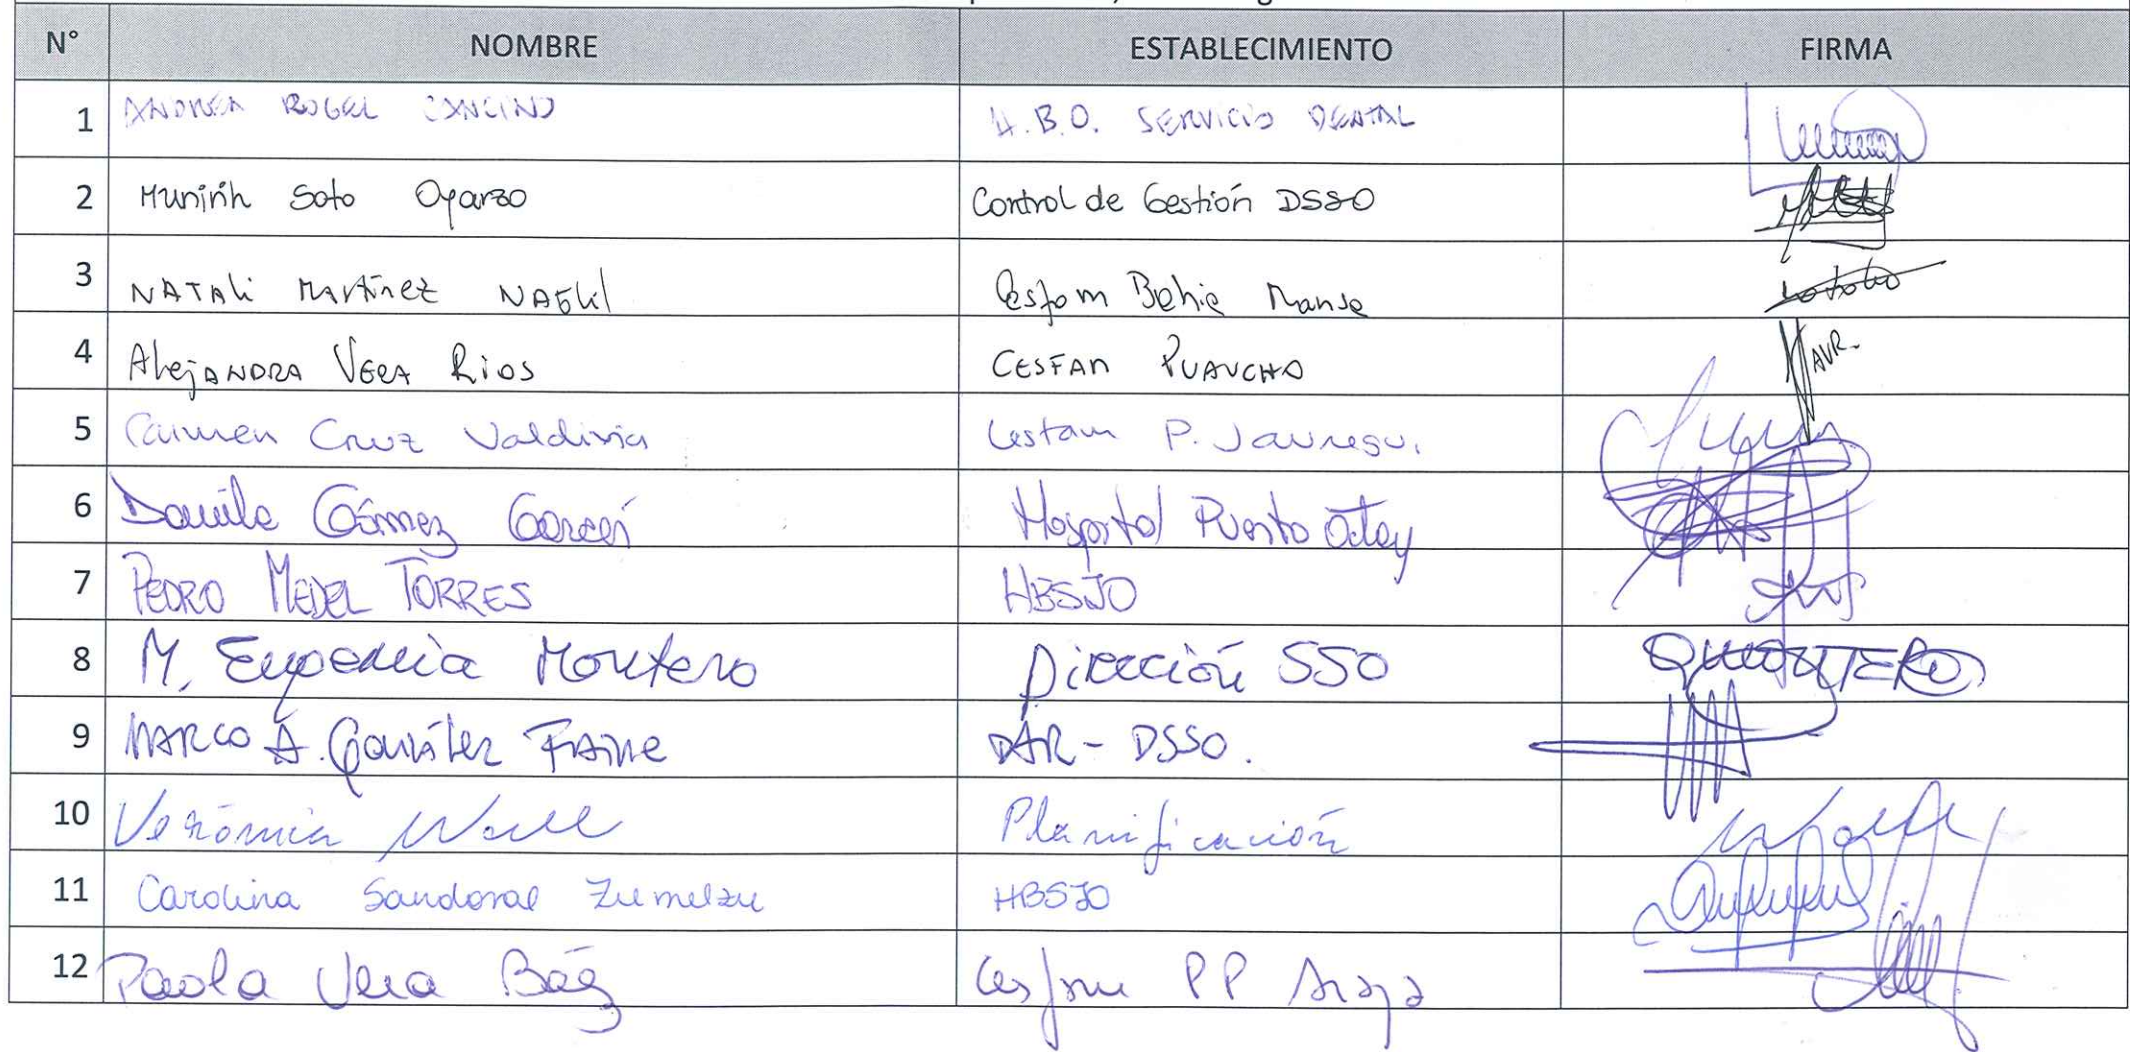 N° NOMBRE ESTABLECIMIENTO FIRMA
1 ANDREA ROGEL CANCINO H.B.O. SERVICIO DENTAL
2 Munirih Soto Oyarzo Control de Gestión DSSO
3 NATALi Martinez Cesfam Bahia Mansa
4 AlejANDRA VERA Rios CESFAM PUAUCHO AVR.
5 Carmen Cruz Valdivia Cesfam P. Jauregui
6 Daniela Gómez García Hospital Puerto Octay
7 PEDRO MEDEL TORRES HBSJO
8 M. Eugenia Montero Dirección SSO
9 MARCO A. DAR - DSSO.
10 Verónica Planificación
11 Carolina Sandoval Zumelzu HBSJO
12 Paola Vera Báez Cesfam PP Araya